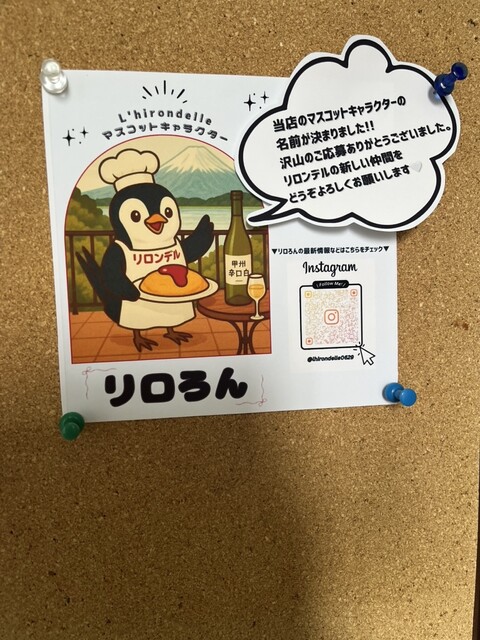 L'hirondelle
マスコットキャラクター
当店のマスコットキャラクターの
名前が決まりました!!
沢山のご応募ありがとうございました。
リロンデルの新しい仲間を
どうぞよろしくお願いします♡
リロンデル
甲州
辛口白
▼リロろんの最新情報などはこちらをチェック▼
Instagram
Follow Me!
@lhirondelle0629
リロろん